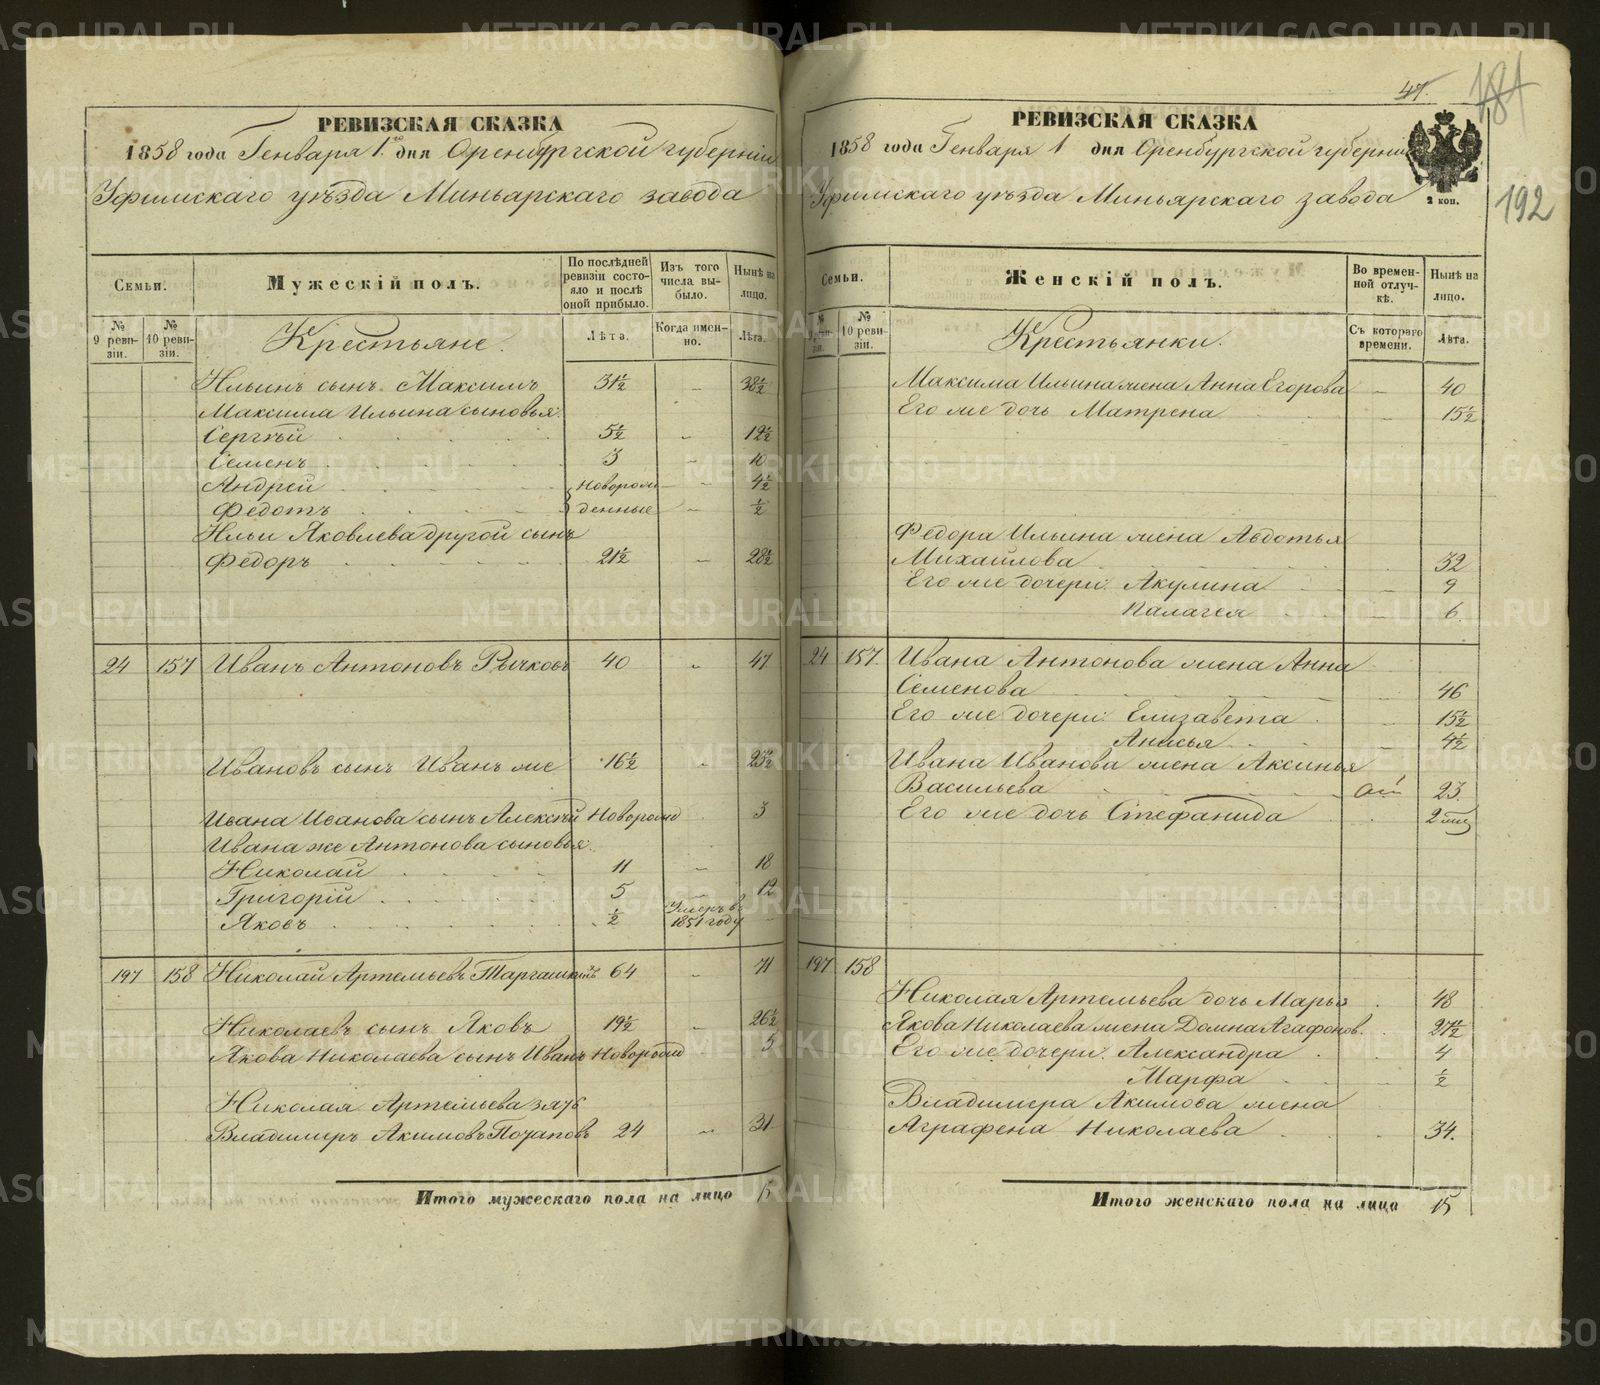 РЕВИЗСКАЯ СКАЗКА
1858 года Генваря 1го дня Оренбургской губерніи
Уфимскаго уѣзда Миньярскаго завода
Семьи.
Мужескій полъ.
По послѣдней ревизіи состояло и послѣ оной прибыло.
Изъ того числа выбыло.
Нынѣ на лицо.
№ 9 ревизіи.
№ 10 ревизіи.
Крестьяне.
Лѣта.
Когда именно.
Лѣта.
Ильинъ сынъ Максимъ 31½ „ 38½
Максима Ильина сыновья:
Сергѣй 5½ „ 12½
Семенъ 3 „ 10
Андрей новорож- „ 4½
Федотъ денные „ ½
Ильи Яковлева другой сынъ
Федоръ 21½ „ 28½
24 157 Иванъ Антоновъ Рычковъ 40 „ 47
Ивановъ сынъ Иванъ же 16½ „ 23½
Ивана Иванова сынъ Алексѣй Новорожд 3
Ивана же Антонова сыновья:
Николай 11 „ 18
Григорій 5 „ 12
Яковъ ½ Умеръ въ 1851 году
197 158 Николай Артемьевъ 64 „ 71
Николаевъ сынъ Яковъ 19½ „ 26½
Якова Николаева сынъ Иванъ Новорожд 5
Николая Артемьева зять
Владимиръ Акимовъ Почаповъ 24 „ 31
Итого мужескаго пола на лицо 15
47.
181
192
РЕВИЗСКАЯ СКАЗКА
1858 года Генваря 1 дня Оренбургской губерніи
Уфимскаго уѣзда Миньярскаго завода
2 коп.
Семьи.
Женскій полъ.
Во временной отлучкѣ.
Нынѣ на лицо.
№ 9 ревизіи.
№ 10 ревизіи.
Крестьянки.
Съ котораго времени.
Лѣта.
Максима Ильина жена Анна Егорова 40
Его же дочь Матрена 15½
Федора Ильина жена Авдотья
Михайлова 32
Его же дочери: Акулина 9
Палагея 6.
24 157. Ивана Антонова жена Анна
Семенова 46
Его же дочери: Елизавета 15½
Анисья 4½
Ивана Иванова жена Аксинья
Васильева 23.
Его же дочь Стефанида 2 мѣс
197 158
Николая Артемьева дочь Марья 48
Якова Николаева жена Домна Агафонов. 27½
Его же дочери: Александра 4
Марфа ½
Владимера Акимова жена
Аграфена Николаева 34.
Итого женскаго пола на лицо 15
METRIKI.GASO-URAL.RU